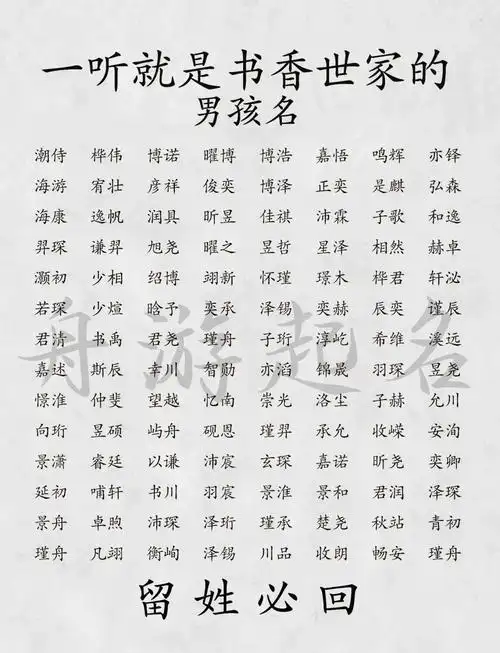 一听就是书香世家的
男孩名
潮侍 桦伟 博诺 曜博 博浩 嘉悟 鸣辉 亦铎
海游 宥壮 彦祥 俊奕 博泽 正奕 是麒 弘森
海康 逸帆 润具 昕昱 佳祺 沛霖 子歌 和逸
羿琛 谦羿 旭尧 曜之 昱哲 星泽 相然 赫卓
灏初 少相 绍博 翊新 怀瑾 璟木 桦君 轩泌
若琛 少煊 晗予 奕承 泽锡 奕赫 辰奕 谨辰
君清 书禹 君尧 瑾舟 子珩 淳屹 希维 溪远
嘉述 斯辰 幸川 智勋 亦滔 锦晟 羽琛 昱尧
憬淮 仲斐 望越 忆南 崇光 洛尘 子赫 允川
向珩 昱硕 屿舟 砚恩 瑾羿 承允 收嵘 安洵
景潇 睿廷 以谦 沛宸 玄琛 嘉诺 昕尧 奕卿
延初 哺轩 书川 羽宸 景淮 景和 君润 泽琛
景舟 卓煦 沛琛 泽珩 瑾承 楚尧 秋站 青初
瑾舟 凡翊 衡峋 泽锡 川品 收朗 畅安 瑾舟
舟游起名
留姓必回